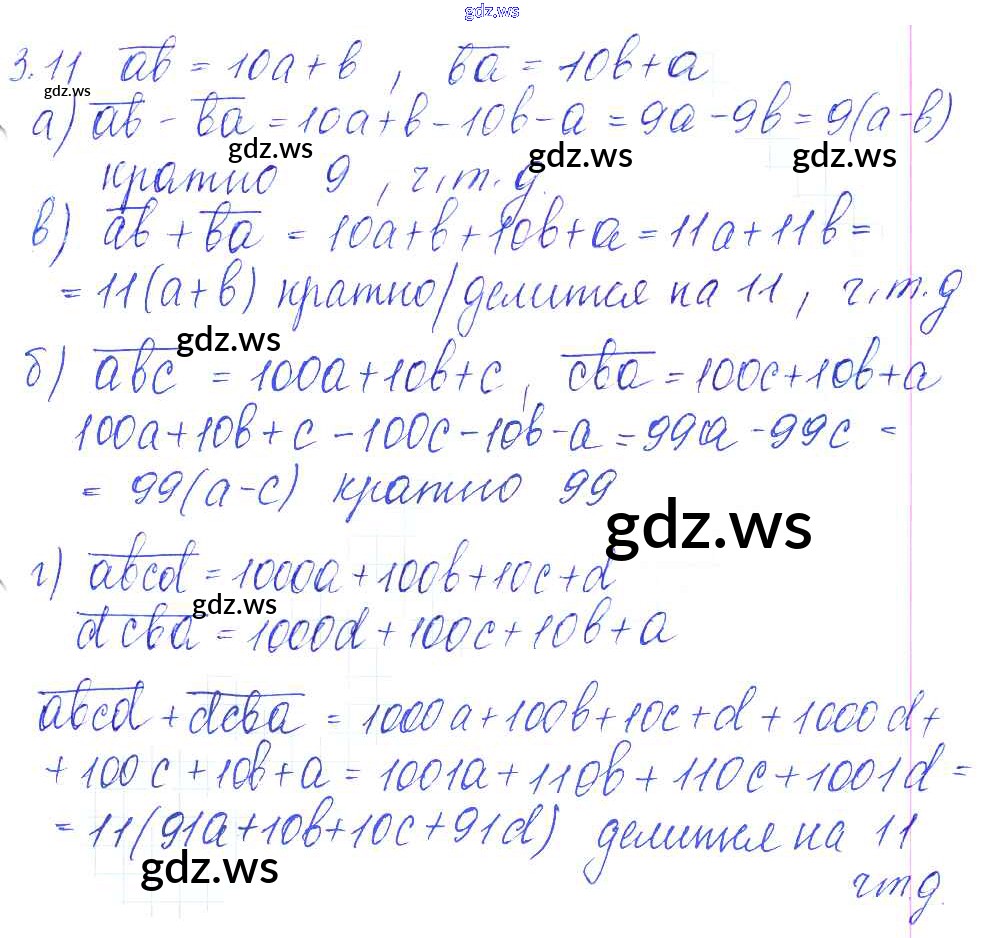 gdz.ws
3.11 ab = 10a + b , ba = 10b + a
gdz.ws
а) ab - ba = 10a + b - 10b - a = 9a - 9b = 9(a - b)
gdz.ws gdz.ws gdz.ws
кратно 9 , ч.т.д.
в) ab + ba = 10a + b + 10b + a = 11a + 11b =
= 11(a + b) кратно/делится на 11 , ч.т.д
gdz.ws
б) abc = 100a + 10b + c , cba = 100c + 10b + a
100a + 10b + c - 100c - 10b - a = 99a - 99c =
= 99(a - c) кратно 99
gdz.ws
г) abcd = 1000a + 100b + 10c + d
gdz.ws
dcba = 1000d + 100c + 10b + a
abcd + dcba = 1000a + 100b + 10c + d + 1000d +
+ 100c + 10b + a = 1001a + 110b + 110c + 1001d =
= 11(91a + 10b + 10c + 91d) делится на 11
gdz.ws
чтд.